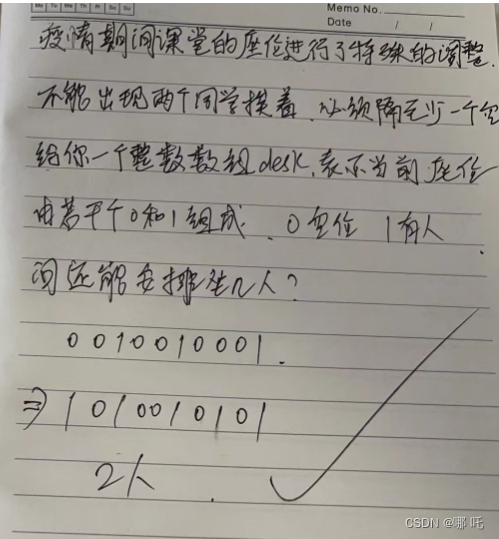 Mo Tu We Th Fr Sa Su
Memo No.
Date / /
疫情期间课堂的座位进行了特殊的调整.
不能出现两个同学挨着.必须隔至少一个空
给你一个整数数组desk,表示当前座位
由若干个0和1组成.0空位 1有人.
问还能安排坐几人?
0010010001.
⇒1010010101
2人.
CSDN @哪吒